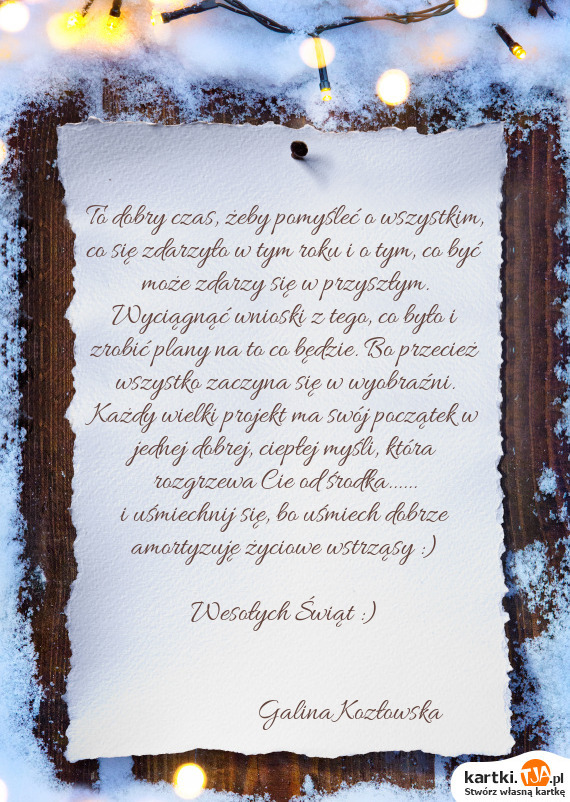 To dobry czas, żeby pomyśleć o wszystkim,
co się zdarzyło w tym roku i o tym, co być
może zdarzy się w przyszłym.
Wyciągnąć wnioski z tego, co było i
zrobić plany na to co będzie. Bo przecież
wszystko zaczyna się w wyobraźni.
Każdy wielki projekt ma swój początek w
jednej dobrej, ciepłej myśli, która
rozgrzewa Cie od środka......
i uśmiechnij się, bo uśmiech dobrze
amortyzuję życiowe wstrząsy :)
Wesołych Świąt :)
Galina Kozłowska
kartki.TJA.pl
Stwórz własną kartkę